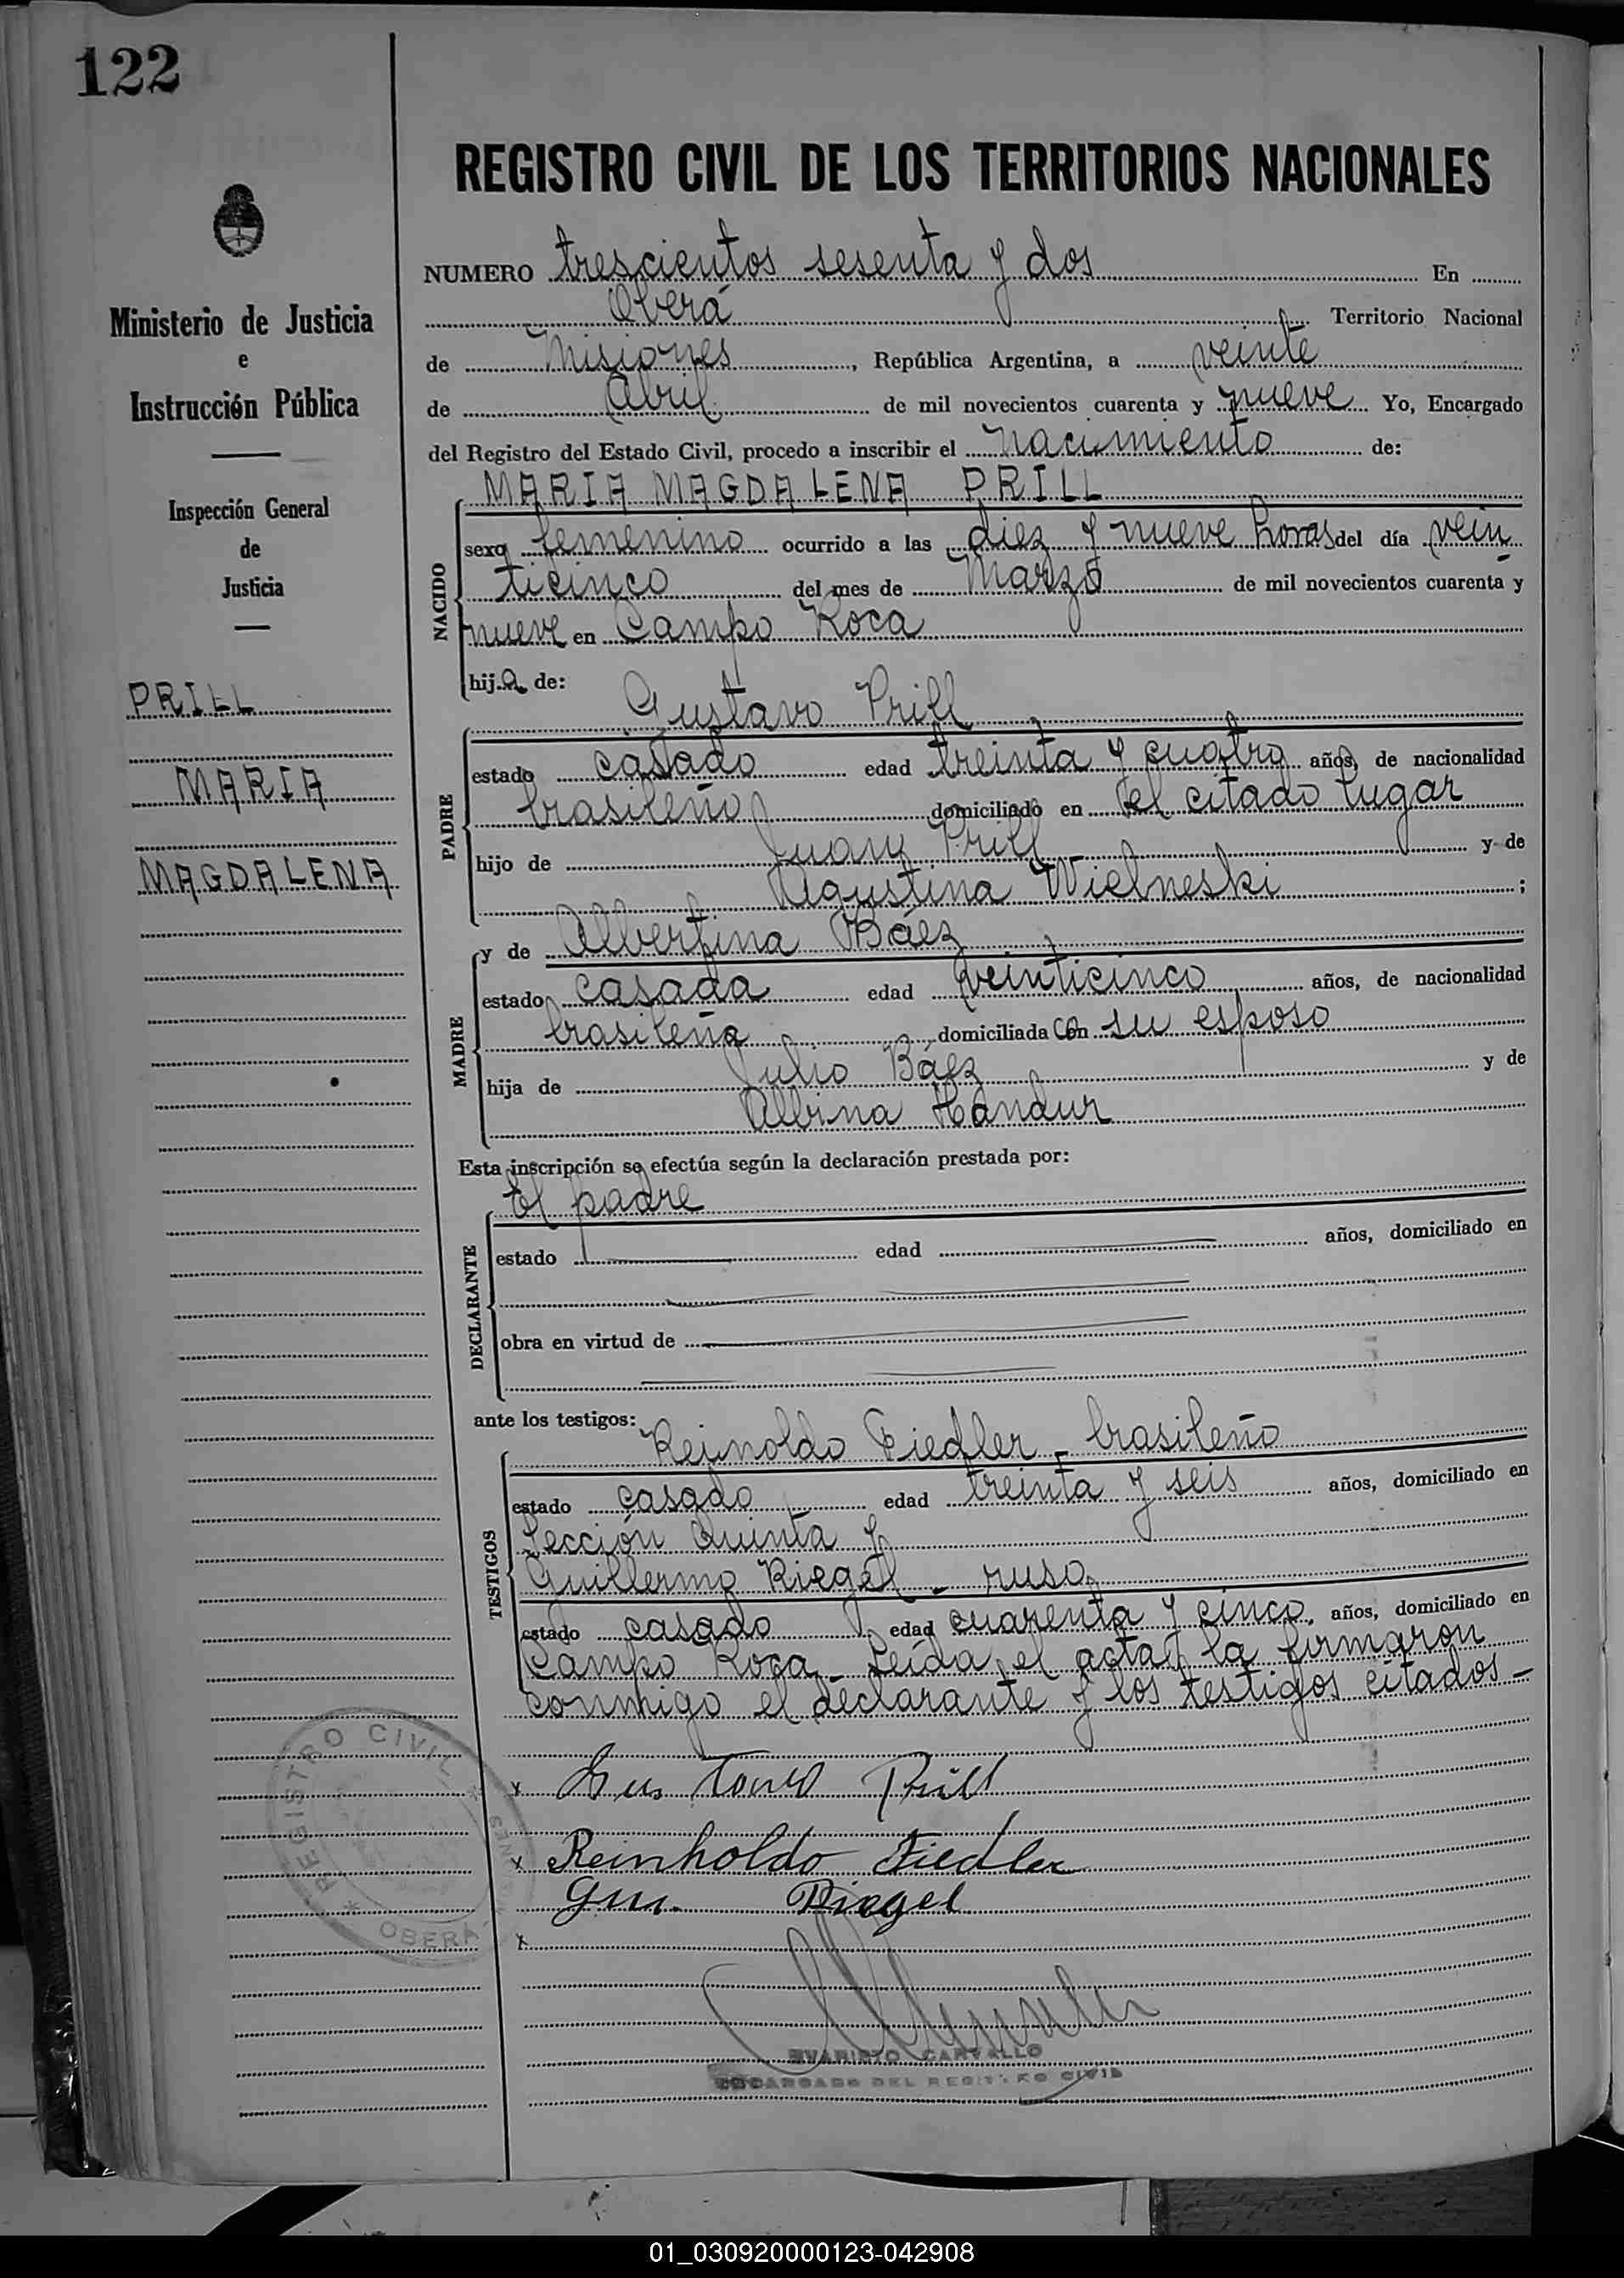 122
REGISTRO CIVIL DE LOS TERRITORIOS NACIONALES
Ministerio de Justicia
e
Instrucción Pública
Inspección General
de
Justicia
PRILL
MARIA
MAGDALENA
NUMERO trescientos sesenta y dos En
Oberá Territorio Nacional
de Misiones, República Argentina, a veinte
de Abril de mil novecientos cuarenta y nueve Yo, Encargado
del Registro del Estado Civil, procedo a inscribir el nacimiento de:
NACIDO
MARIA MAGDALENA PRILL
sexo femenino ocurrido a las diez y nueve horas del día vein
ticinco del mes de Marzo de mil novecientos cuarenta y
nueve en Campo Roca
hija de:
PADRE
Gustavo Prill
estado casado edad treinta y cuatro años, de nacionalidad
brasileño domiciliado en el citado lugar
hijo de Juan Prill y de
Agustina Wielneski;
MADRE
y de Albertina Báez
estado casada edad veinticinco años, de nacionalidad
brasileña, domiciliada con su esposo
hija de Julio Báez y de
Albina Handur
Esta inscripción se efectúa según la declaración prestada por:
DECLARANTE
el padre
estado edad años, domiciliado en
obra en virtud de
ante los testigos:
TESTIGOS
Reinoldo Fiedler - brasileño
estado casado edad treinta y seis años, domiciliado en
Sección Quinta y
Guillermo Riegel - ruso
estado casado edad cuarenta y cinco años, domiciliado en
Campo Roca - Leída el acta, la firmaron
conmigo el declarante y los testigos citados -
x Gustavo Prill
x Reinholdo Fiedler
Gui. Riegel
x
REGISTRO CIVIL
OBERÁ
EVARISTO CARVALLO
ENCARGADO DEL REGISTRO CIVIL
01_030920000123-042908